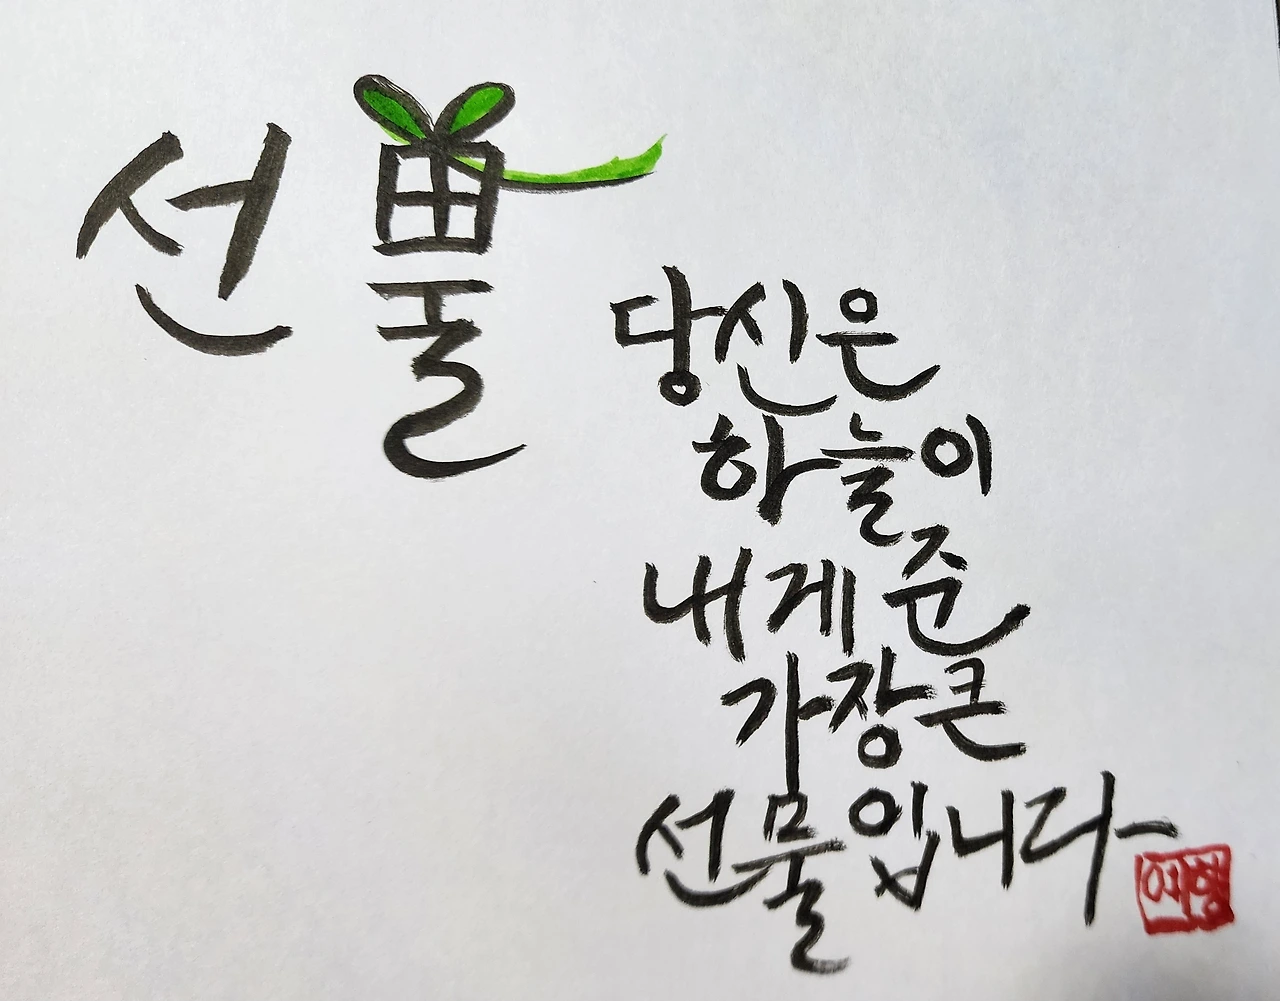 선물
당신은
하늘이
내게 준
가장 큰
선물입니다